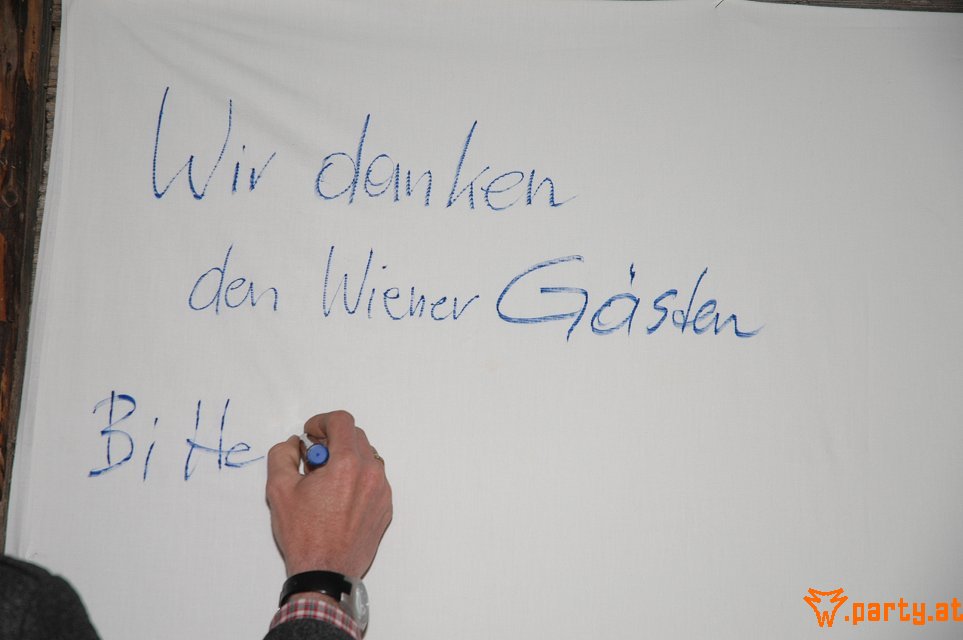 Wir danken
den Wiener Gästen
Bitte
.party.at